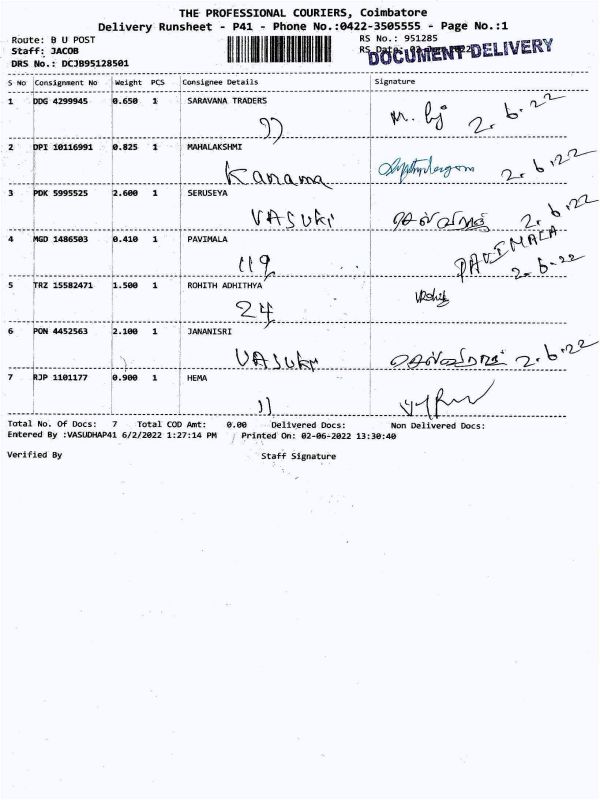 THE PROFESSIONAL COURIERS, Coimbatore
Delivery Runsheet - P41 - Phone No.:0422-3505555 - Page No.:1
Route: B U POST RS No.: 951285
Staff: JACOB RS Date: 02-Jun-2022
DOCUMENT DELIVERY
DRS No.: DCJB95128501
S No Consignment No Weight PCS Consignee Details Signature
1 DDG 4299945 0.650 1 SARAVANA TRADERS
2.6.22
2 DPI 10116991 0.825 1 MAHALAKSHMI
Kanama 2.6.22
3 PDK 5995525 2.600 1 SERUSEYA
VASUKI 2.6.22
4 MGD 1486503 0.410 1 PAVIMALA
119 PAVIMALA 2-6-22
5 TRZ 15582471 1.500 1 ROHITH ADHITHYA
24 Rohith
6 PON 4452563 2.100 1 JANANISRI
VASUKI 2.6.22
7 RJP 1101177 0.900 1 HEMA
Total No. Of Docs: 7 Total COD Amt: 0.00 Delivered Docs: Non Delivered Docs:
Entered By :VASUDHAP41 6/2/2022 1:27:14 PM Printed On: 02-06-2022 13:30:40
Verified By Staff Signature